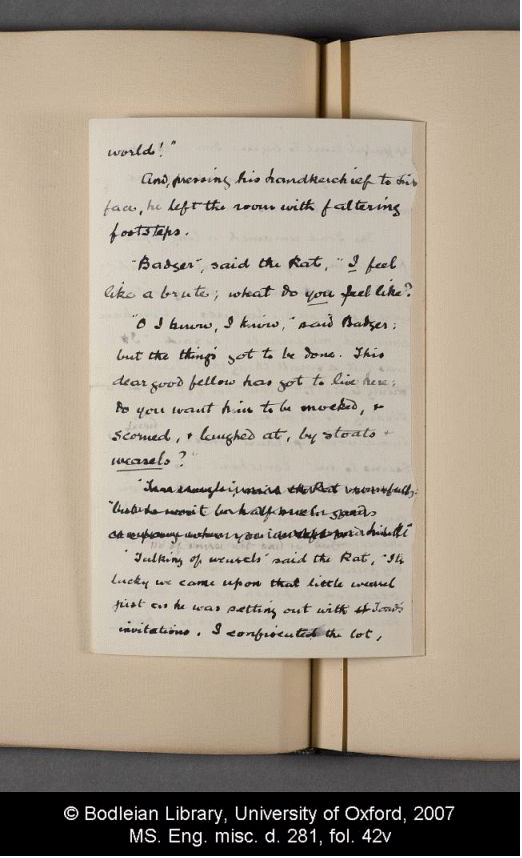 world!"
And, pressing his handkerchief to his
face, he left the room with faltering
footsteps.
"Badger", said the Rat, "I feel
like a brute; what do you feel like?
"O I know, I know," said Badger;
but the thing's got to be done. This
dear good fellow has got to live here;
do you want him to be mocked, +
scorned, + laughed at, by stoats +
weasels?"
said the Rat mournfully;
"but he won't be half such good
company
"Talking of weasels" said the Rat, "It's
lucky we came upon that little weasel
just as he was setting out with Toad's
invitations. I confiscated the lot,
© Bodleian Library, University of Oxford, 2007
MS. Eng. misc. d. 281, fol. 42v